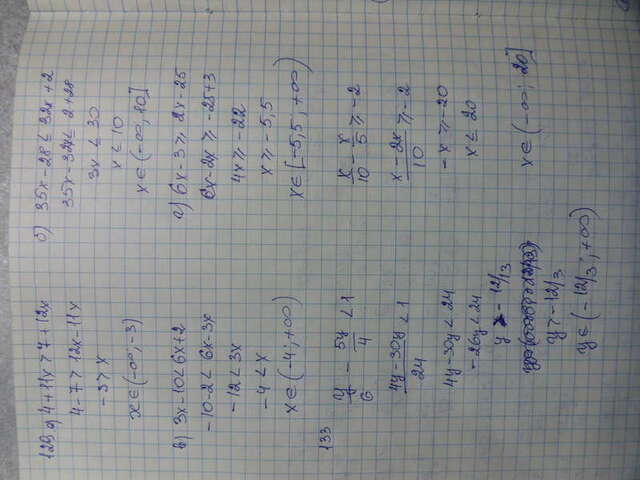 129 а) 4+11x > 7+12x
4-7 > 12x-11x
-3 > x
x ∈ (-∞; -3)
б) 35x-28 ≤ 32x+2
35x-32x ≤ 2+28
3x ≤ 30
x ≤ 10
x ∈ (-∞, 10]
в) 3x-10 < 6x+2
-10-2 < 6x-3x
-12 < 3x
-4 < x
x ∈ (-4; +∞)
г) 6x-3 ≥ 2x-25
6x-2x ≥ -25+3
4x ≥ -22
x ≥ -5,5
x ∈ [-5,5; +∞)
133
y/6 - 5y/4 < 1
(4y-30y)/24 < 1
4y-30y < 24
-26y < 24
y > -12/13
y > -12/3
y ∈ (-12/3; +∞)
x/10 - x/5 ≥ -2
(x-2x)/10 ≥ -2
-x ≥ -20
x ≤ 20
x ∈ (-∞; 20]